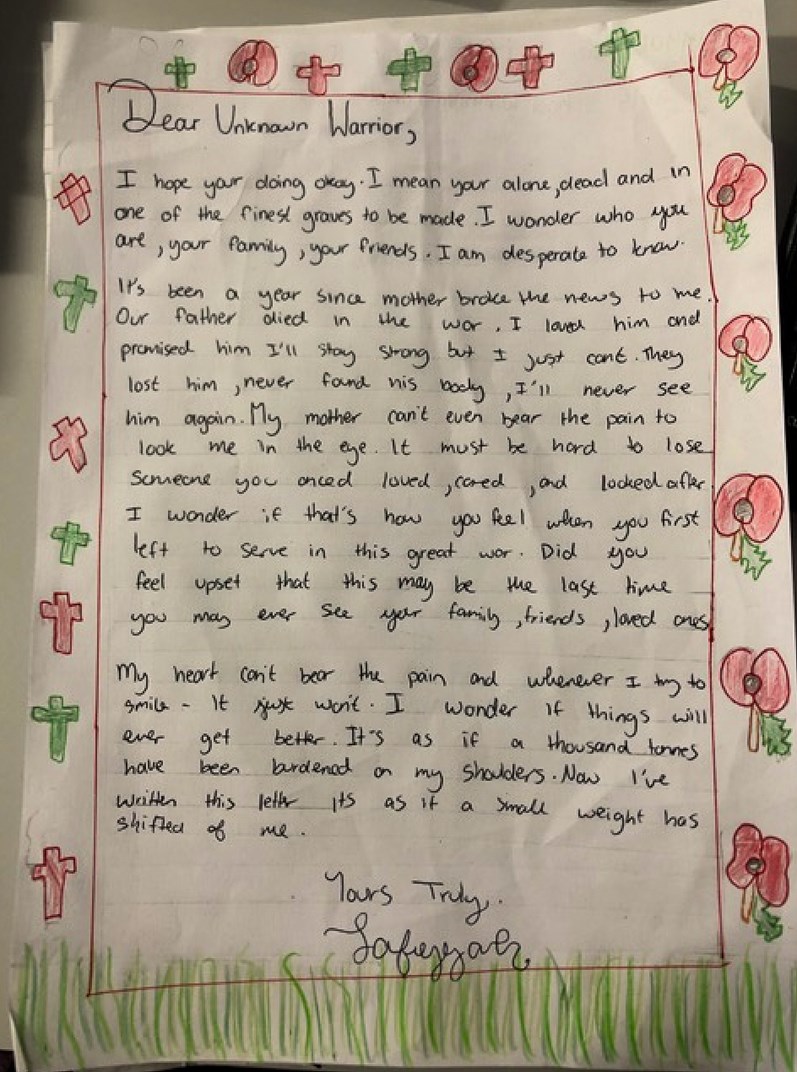 Dear Unknown Warrior,
I hope your doing okay. I mean your alone, dead and in
one of the finest graves to be made. I wonder who you
are, your family, your friends. I am desperate to know.
It's been a year since mother broke the news to me.
Our father died in the war. I loved him and
promised him I'll stay strong but I just cant. They
lost him, never found his body, I'll never see
him again. My mother can't even bear the pain to
look me in the eye. It must be hard to lose
someone you onced loved, cared, and looked after
I wonder if that's how you feel when you first
left to serve in this great war. Did you
feel upset that this may be the last time
you may ever see your family, friends, loved ones
My heart can't bear the pain and whenever I try to
smile - It just won't. I wonder if things will
ever get better. It's as if a thousand tonnes
have been burdened on my shoulders. Now I've
written this letter its as if a small weight has
shifted of me.
Yours Truly,